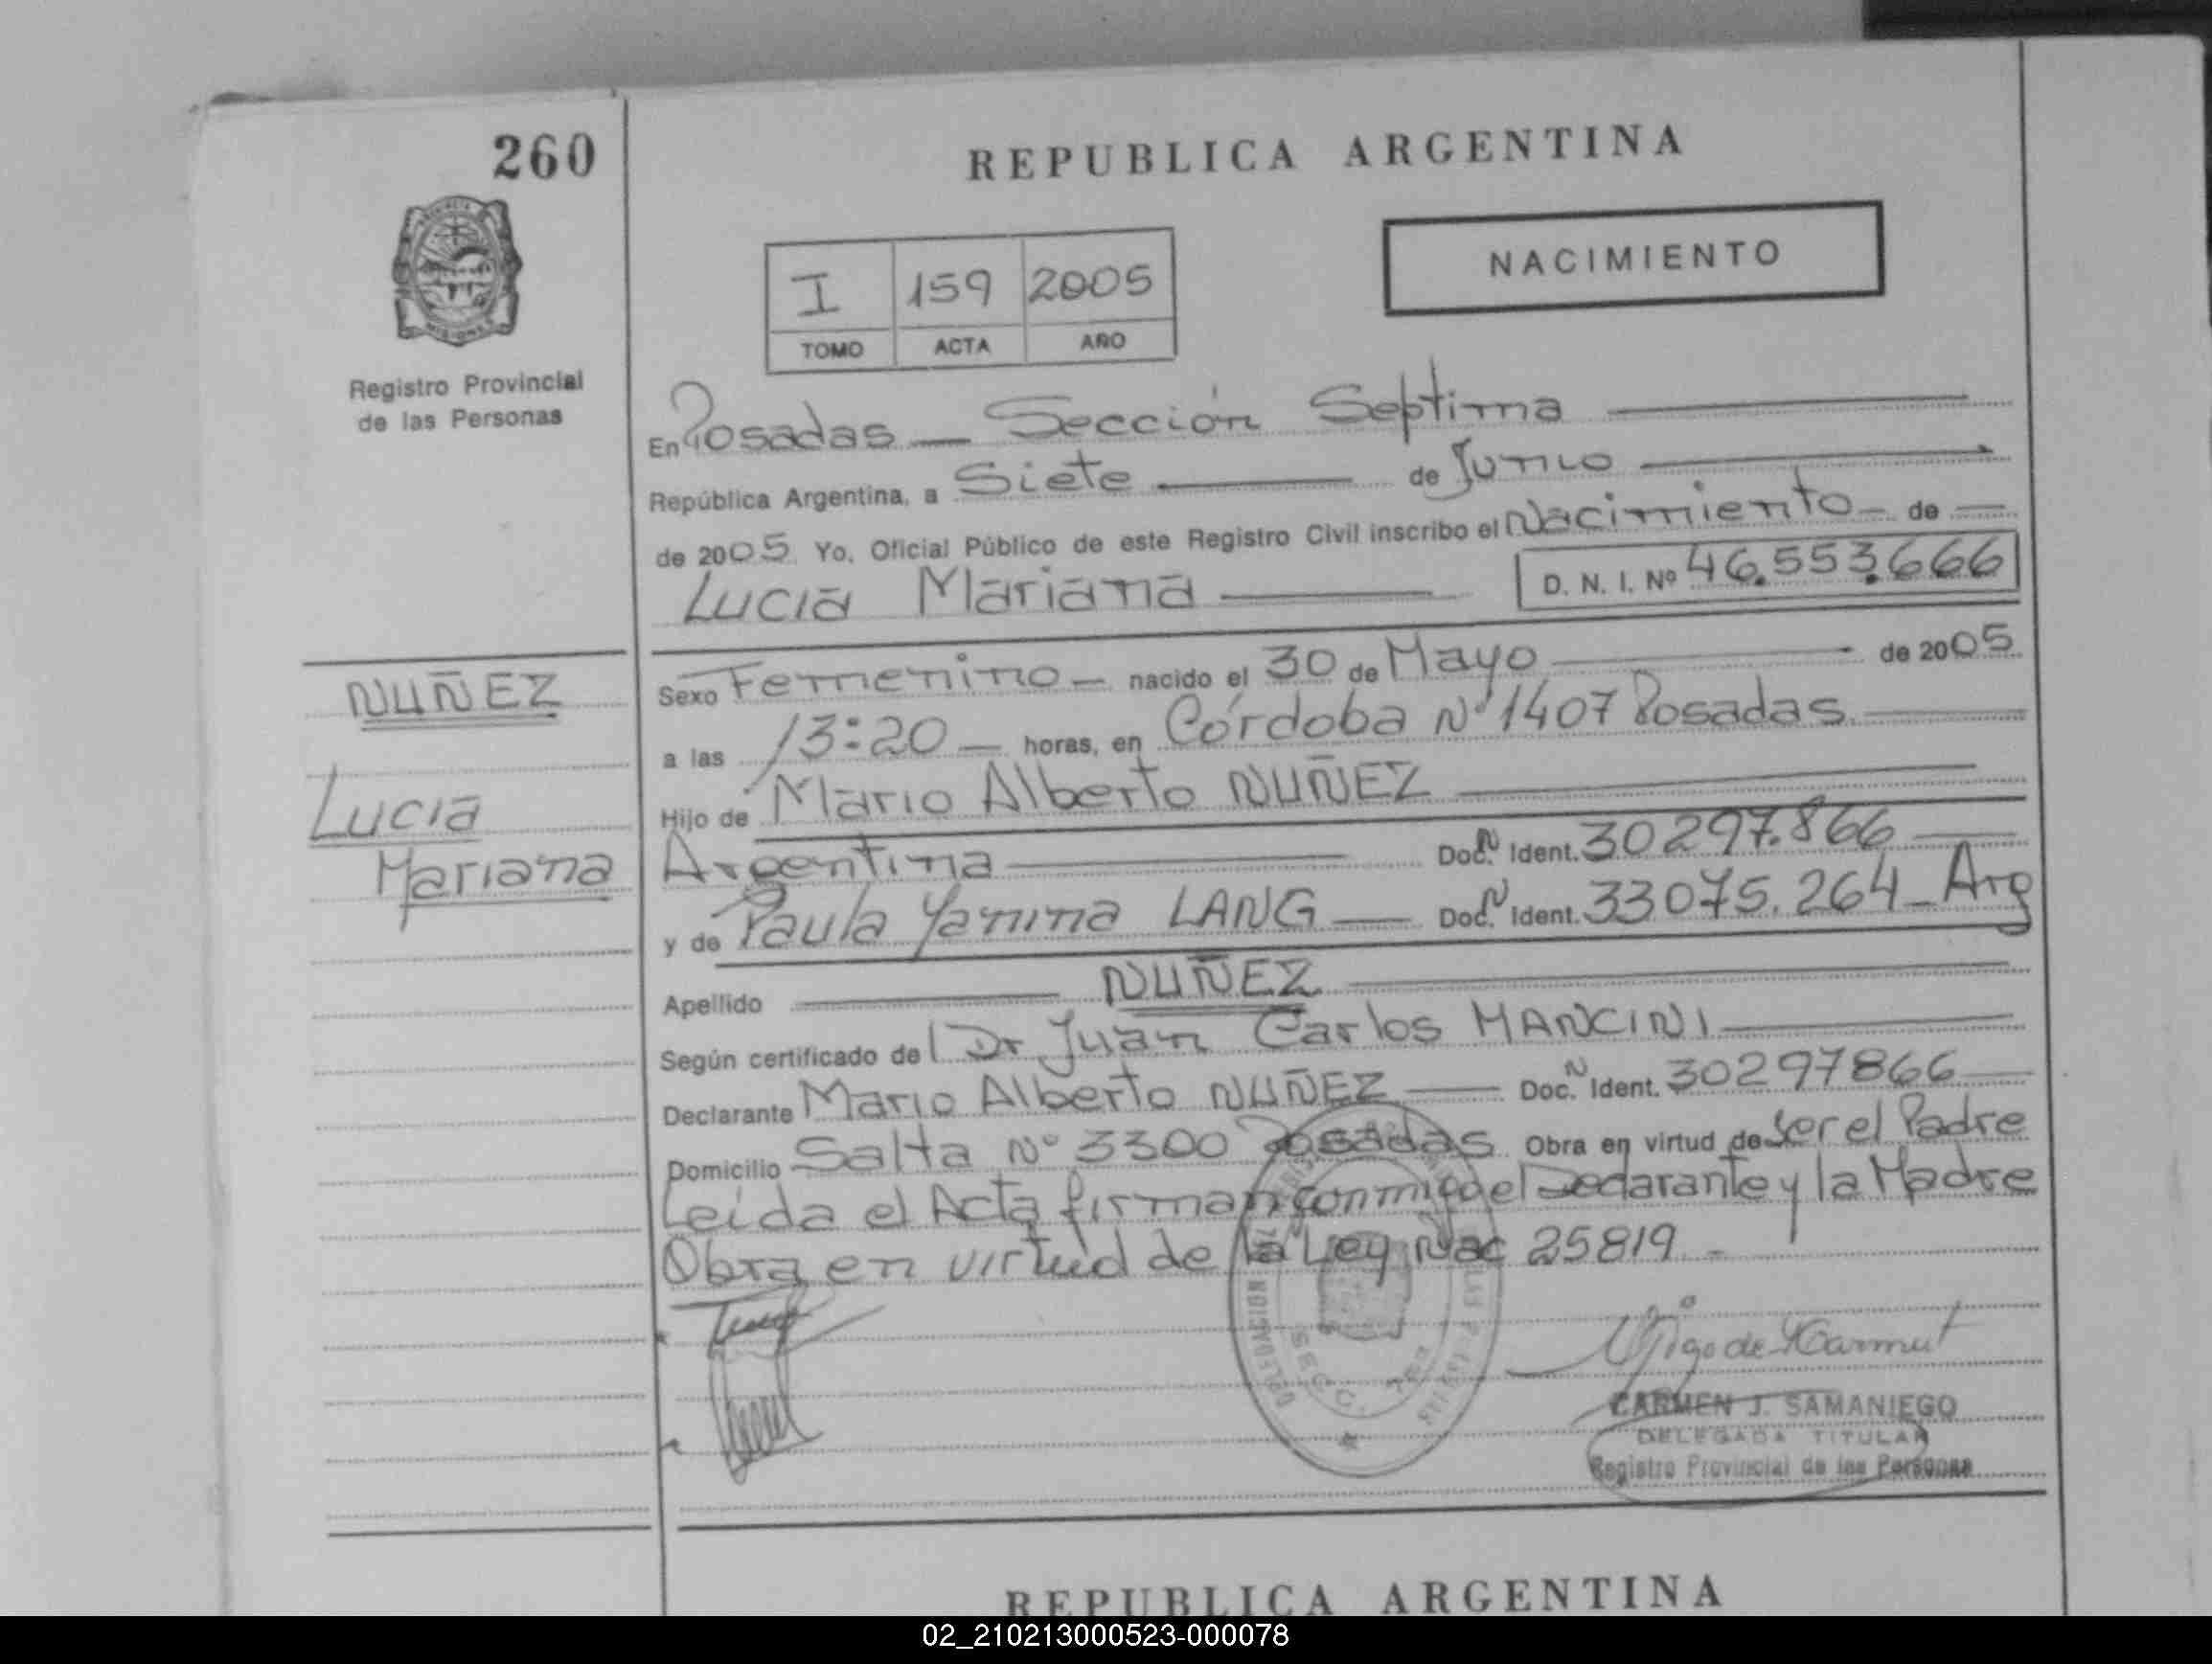 260
REPUBLICA ARGENTINA
NACIMIENTO
I 159 2005
TOMO ACTA AÑO
Registro Provincial
de las Personas
En Posadas — Sección Septima
República Argentina, a Siete de Junio
de 2005 Yo, Oficial Público de este Registro Civil inscribo el Nacimiento - de
Lucia Mariana D. N. I. Nº 46.553.666
NUÑEZ
Lucia
Mariana
Sexo Femenino - nacido el 30 de Mayo de 2005
a las 13:20 - horas, en Córdoba Nº 1407 Posadas
Hijo de Mario Alberto NUÑEZ
Argentina Doc. N Ident. 30297.866
y de Paula Yanina LANG Doc. N Ident. 33075.264 - Arg
Apellido NUÑEZ
Según certificado del Dr Juan Carlos MANCINI
Declarante Mario Alberto NUÑEZ Doc. N Ident. 30297866
Domicilio Salta Nº 3300 Posadas Obra en virtud de ser el Padre
Leida el Acta firman conmigo el Declarante y la Madre
Obra en virtud de la Ley Nac 25819 -
DELEGACION
SECC. 7ma
CARMEN J. SAMANIEGO
DELEGADA TITULAR
Registro Provincial de las Personas
REPUBLICA ARGENTINA
02_210213000523-000078